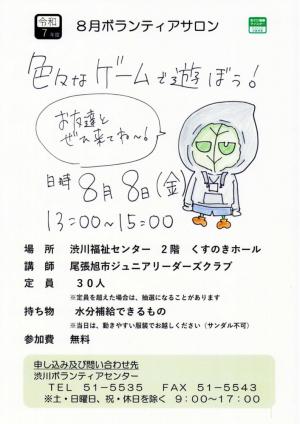 令和
7年度
8月ボランティアサロン
色々なゲームで遊ぼう!
お友達と
ぜひ来てね〜!
日時 8月8日(金)
13:00〜15:00
場所 渋川福祉センター 2階 くすのきホール
講師 尾張旭市ジュニアリーダーズクラブ
定員 30人
※定員を超えた場合は、抽選になることがあります
持ち物 水分補給できるもの
※当日は、動きやすい服装でお越しください(サンダル不可)
参加費 無料
申し込み及び問い合わせ先
渋川ボランティアセンター
TEL 51-5535 FAX 51-5543
※土・日曜日、祝・休日を除く 9:00〜17:00